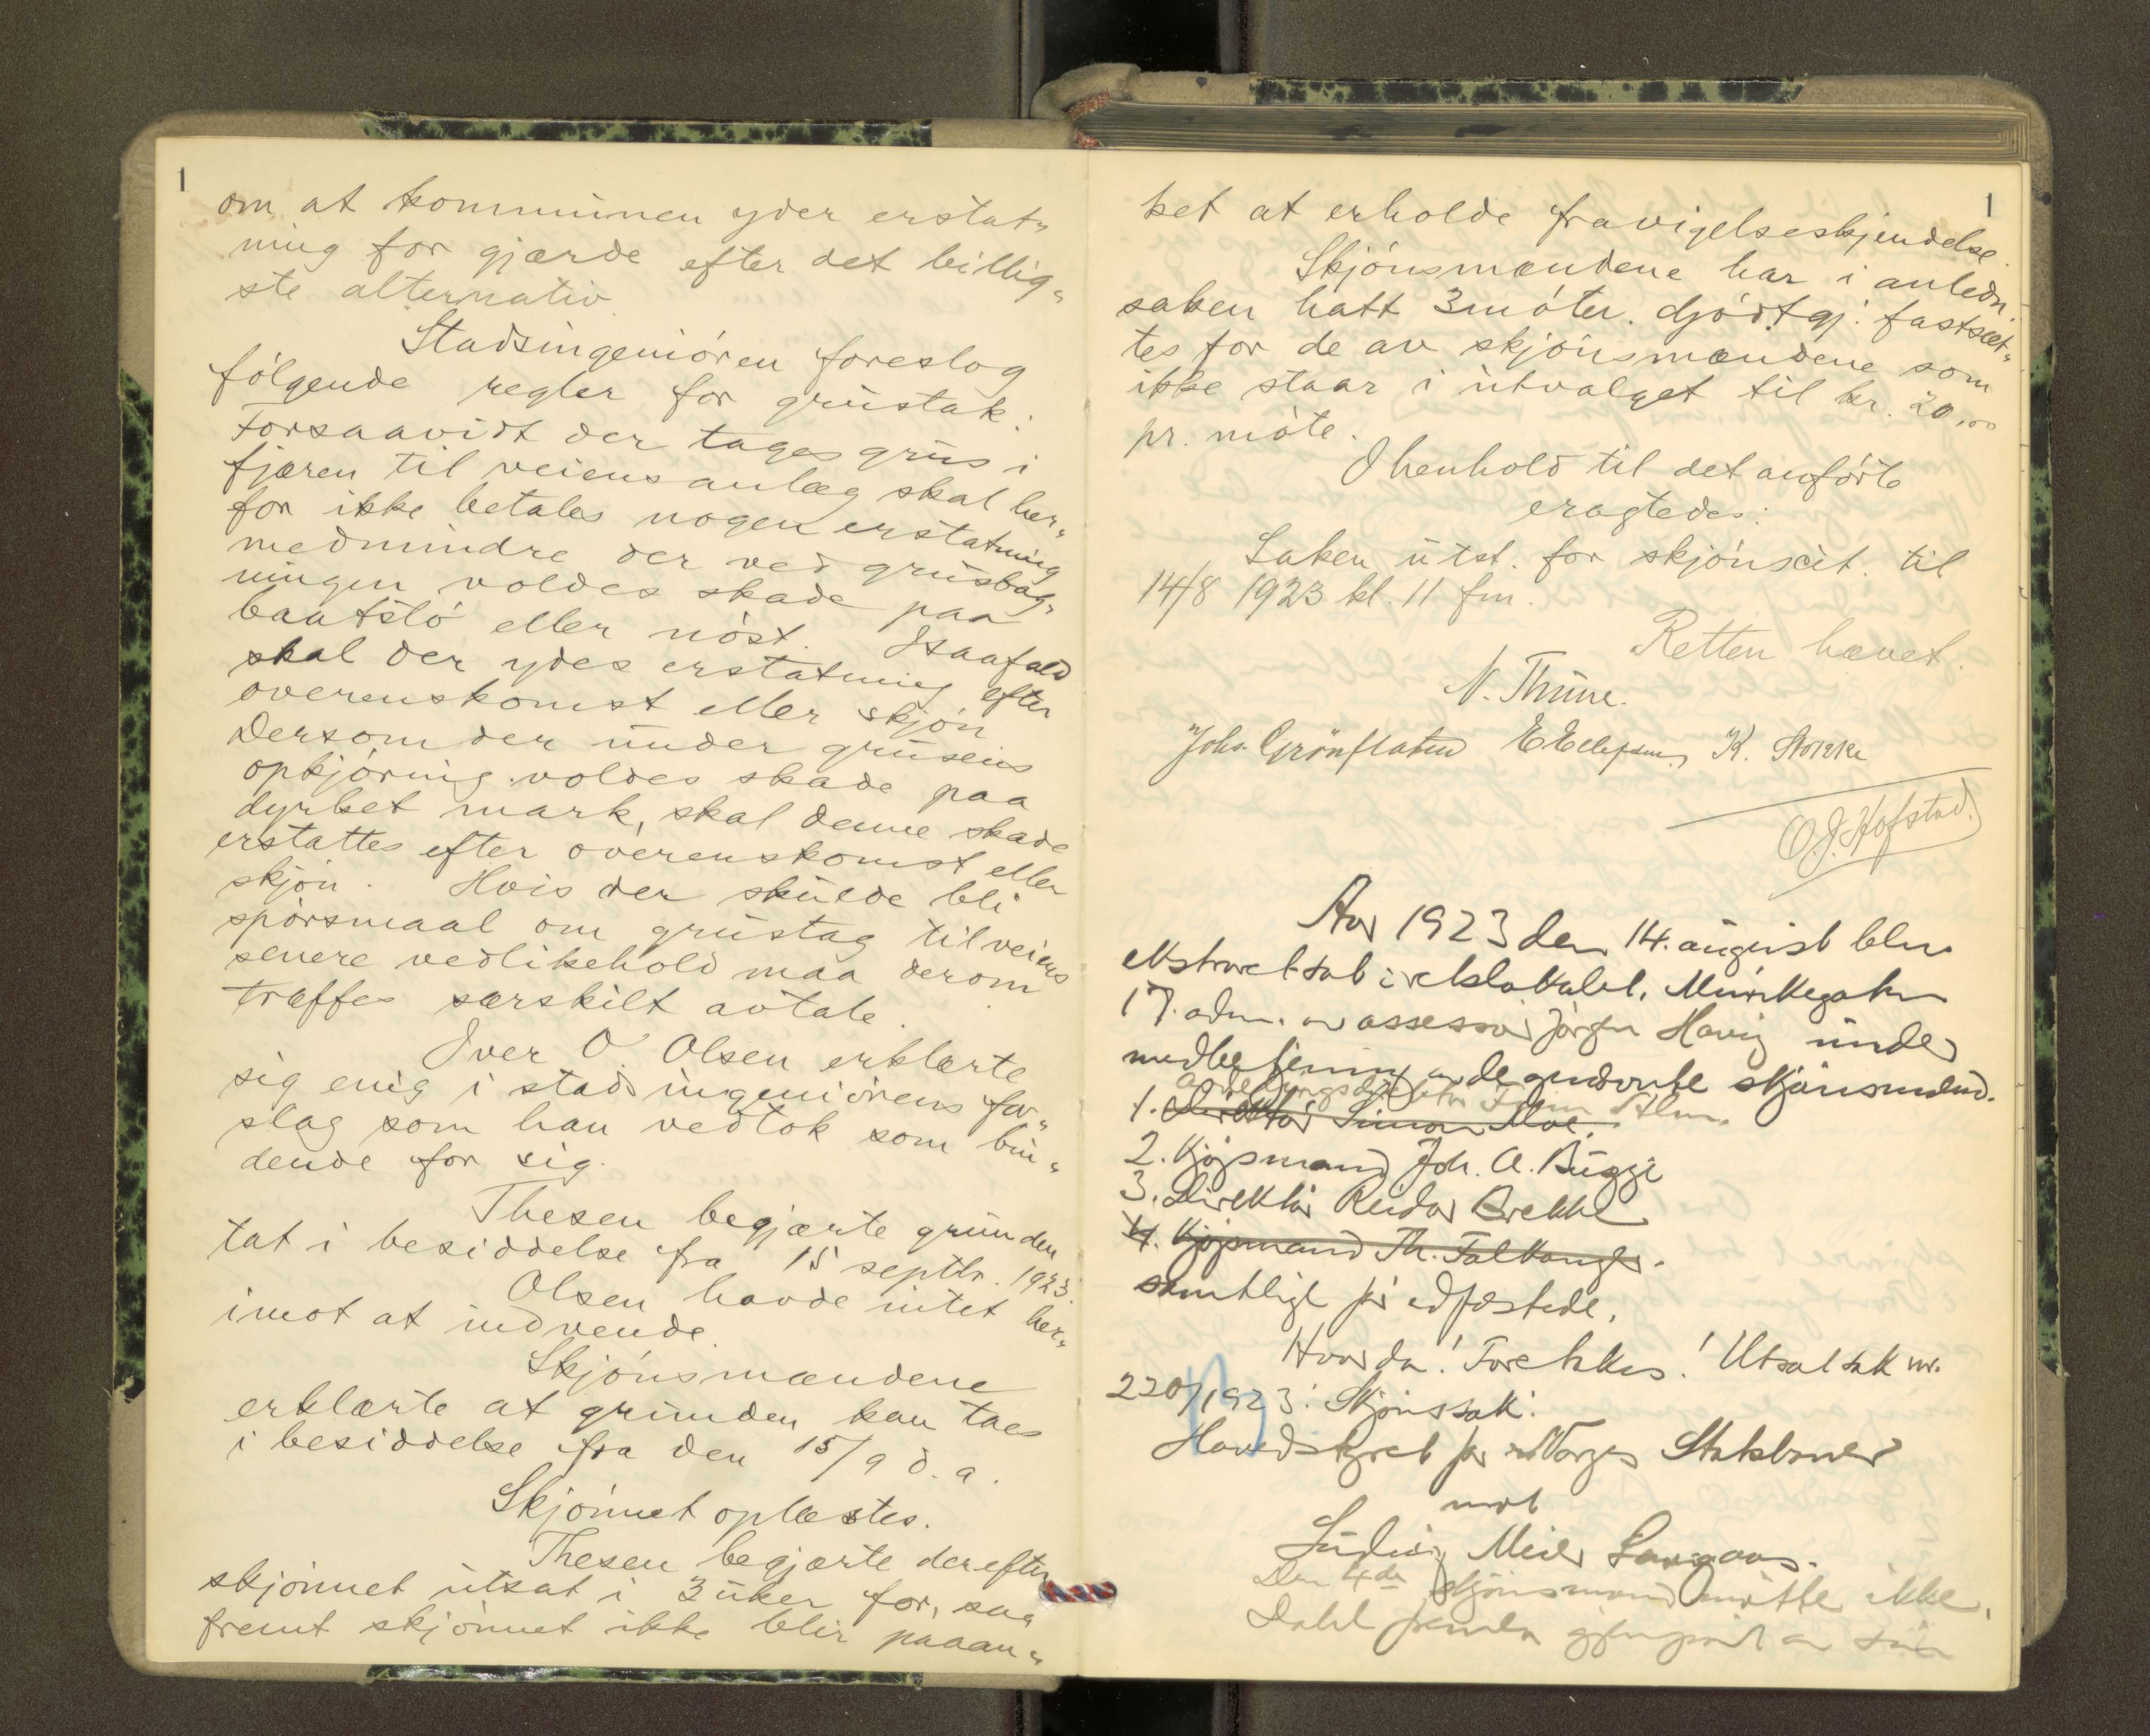 1
om at kommunen yder erstat„
ning for gjærde efter det billig„
ste alternativ.
Stadsingeniören foreslog
fölgende regler for grustak:
Forsaavidt der tages grus i
fjæren til veiens anlæg skal her„
for ikke betales nogen erstatning
medmindre der ved grustag„
ningen voldes skade paa
baatstö eller nöst. Isaafald
skal der ydes erstatning efter
overenskomst eller skjön
Dersom der under grusens
opkjöring voldes skade paa
dyrket mark, skal denne skade
erstattes efter overenskomst eller
skjön. Hvis der skulde bli
spörsmaal om grustag til veiens
senere vedlikehold maa derom
træffes særskilt avtale.
Iver O. Olsen erklærte
sig enig i stadsingeniörens for„
slag som han vedtok som bin„
dende for sig.
Thesen begjærte grunden
tat i besiddelse fra 15 septbr. 1923.
Olsen havde intet her„
imot at indvende.
Skjönsmændene
erklærte at grunden kan taes
i besiddelse fra den 15/9 d.a.
Skjönnet oplæstes.
Thesen begjærte derefter
skjönnet utsat i 3 uker for, saa
fremt skjönnet ikke blir paaan„
1
ket at erholde fravigelseskjendelse.
Skjönsmændene har i anledn.
saken hatt 3 möter. Godtgj. fastsæt„
tes for de av skjönsmændene som
ikke staar i utvalget til kr. 20,00
pr. möte.
I henhold til det anförte
eragtedes:
Saken utst. for skjönset. til
14/8 1923 kl. 11 fm.
Retten hævet.
N. Thune.
Johs. Grönflaten E Ellefsen, K. Storkke
O. J. Hofstad.
Aar 1923 den 14. august blev
ekstraret sat i retslokalet, Munkegaten
17. adm. av assessor Jörgen Havig under
medbetjening av de opnævnte skjönsmænd.
1. Direktör Simon Moe.
2. Kjöpmand Joh. A. Bugge
3. Direktör Reidar Brekke
4. Kjöpmand Th. Falkanger.
samtlige för edfæstede.
Hvorda! Foretokes! Utsat sak nr.
220/1923: Skjönssak:
Hovedstyret for Norges Statsbaner
mot
Ludvig Meier
Den 4de skjönsmand mötte ikke.